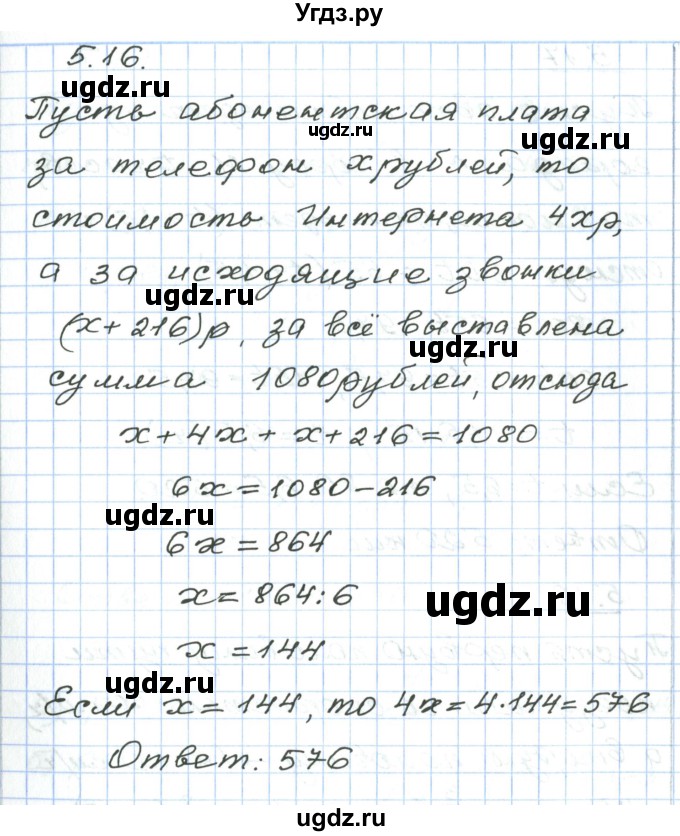 Угдз.ру
5.16.
ugdz.ru
Пусть абонентская плата
ugdz.ru
ugdz.ru
за телефон x рублей, то
стоимость Интернета 4xр,
а за исходящие звонки
ugdz.ru
(x+216)р, за всё выставлена
ugdz.ru
сумма 1080рублей, отсюда
x+4x+x+216=1080
6x=1080-216
ugdz.ru
6x=864
x=864:6
ugdz.ru
x=144
ugdz.ru
Если x=144, то 4x=4·144=576
Ответ: 576
ugdz.ru
ugdz.ru